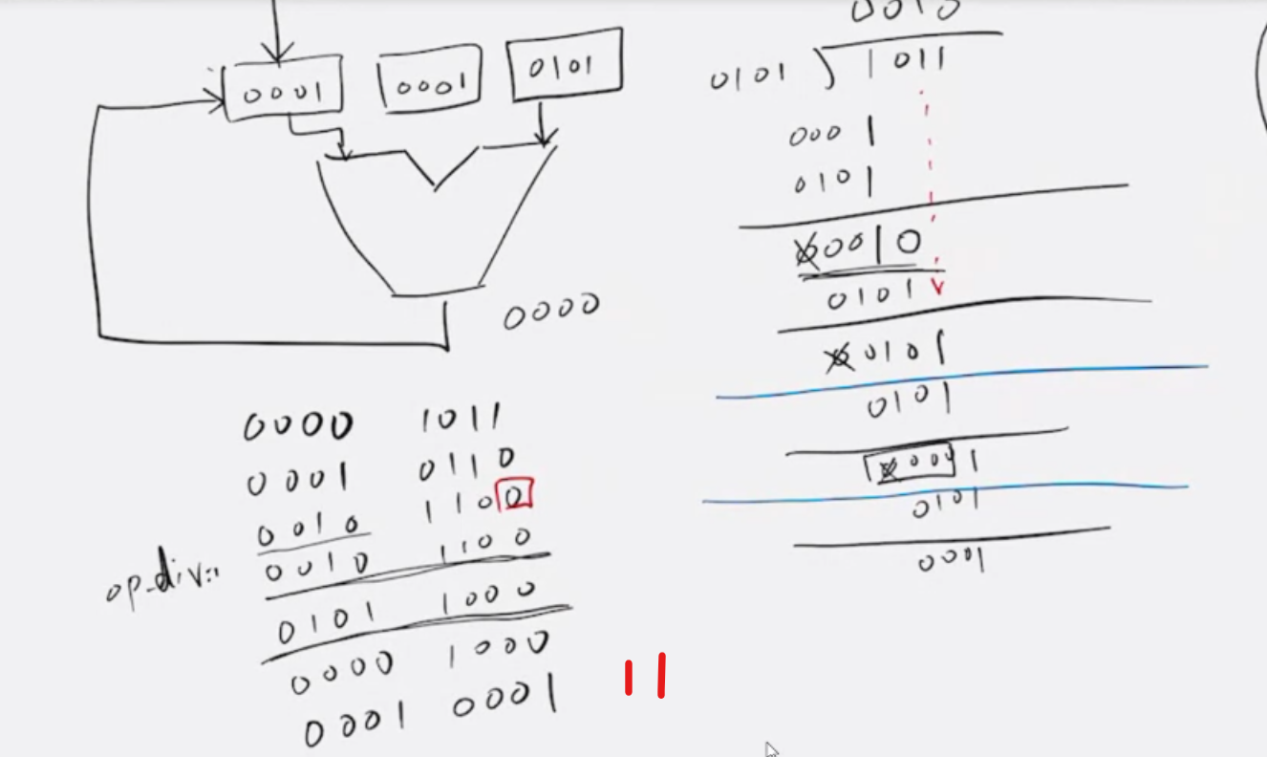 0001 0001 0101
0000
0000 1011
0001 0110
0010 1100
0010 1100
op-div::
0101 1000
0000 1000
0001 0001
11
0101 1011
0001
0101
00010
0101
00101
0101
00001
0101
0001